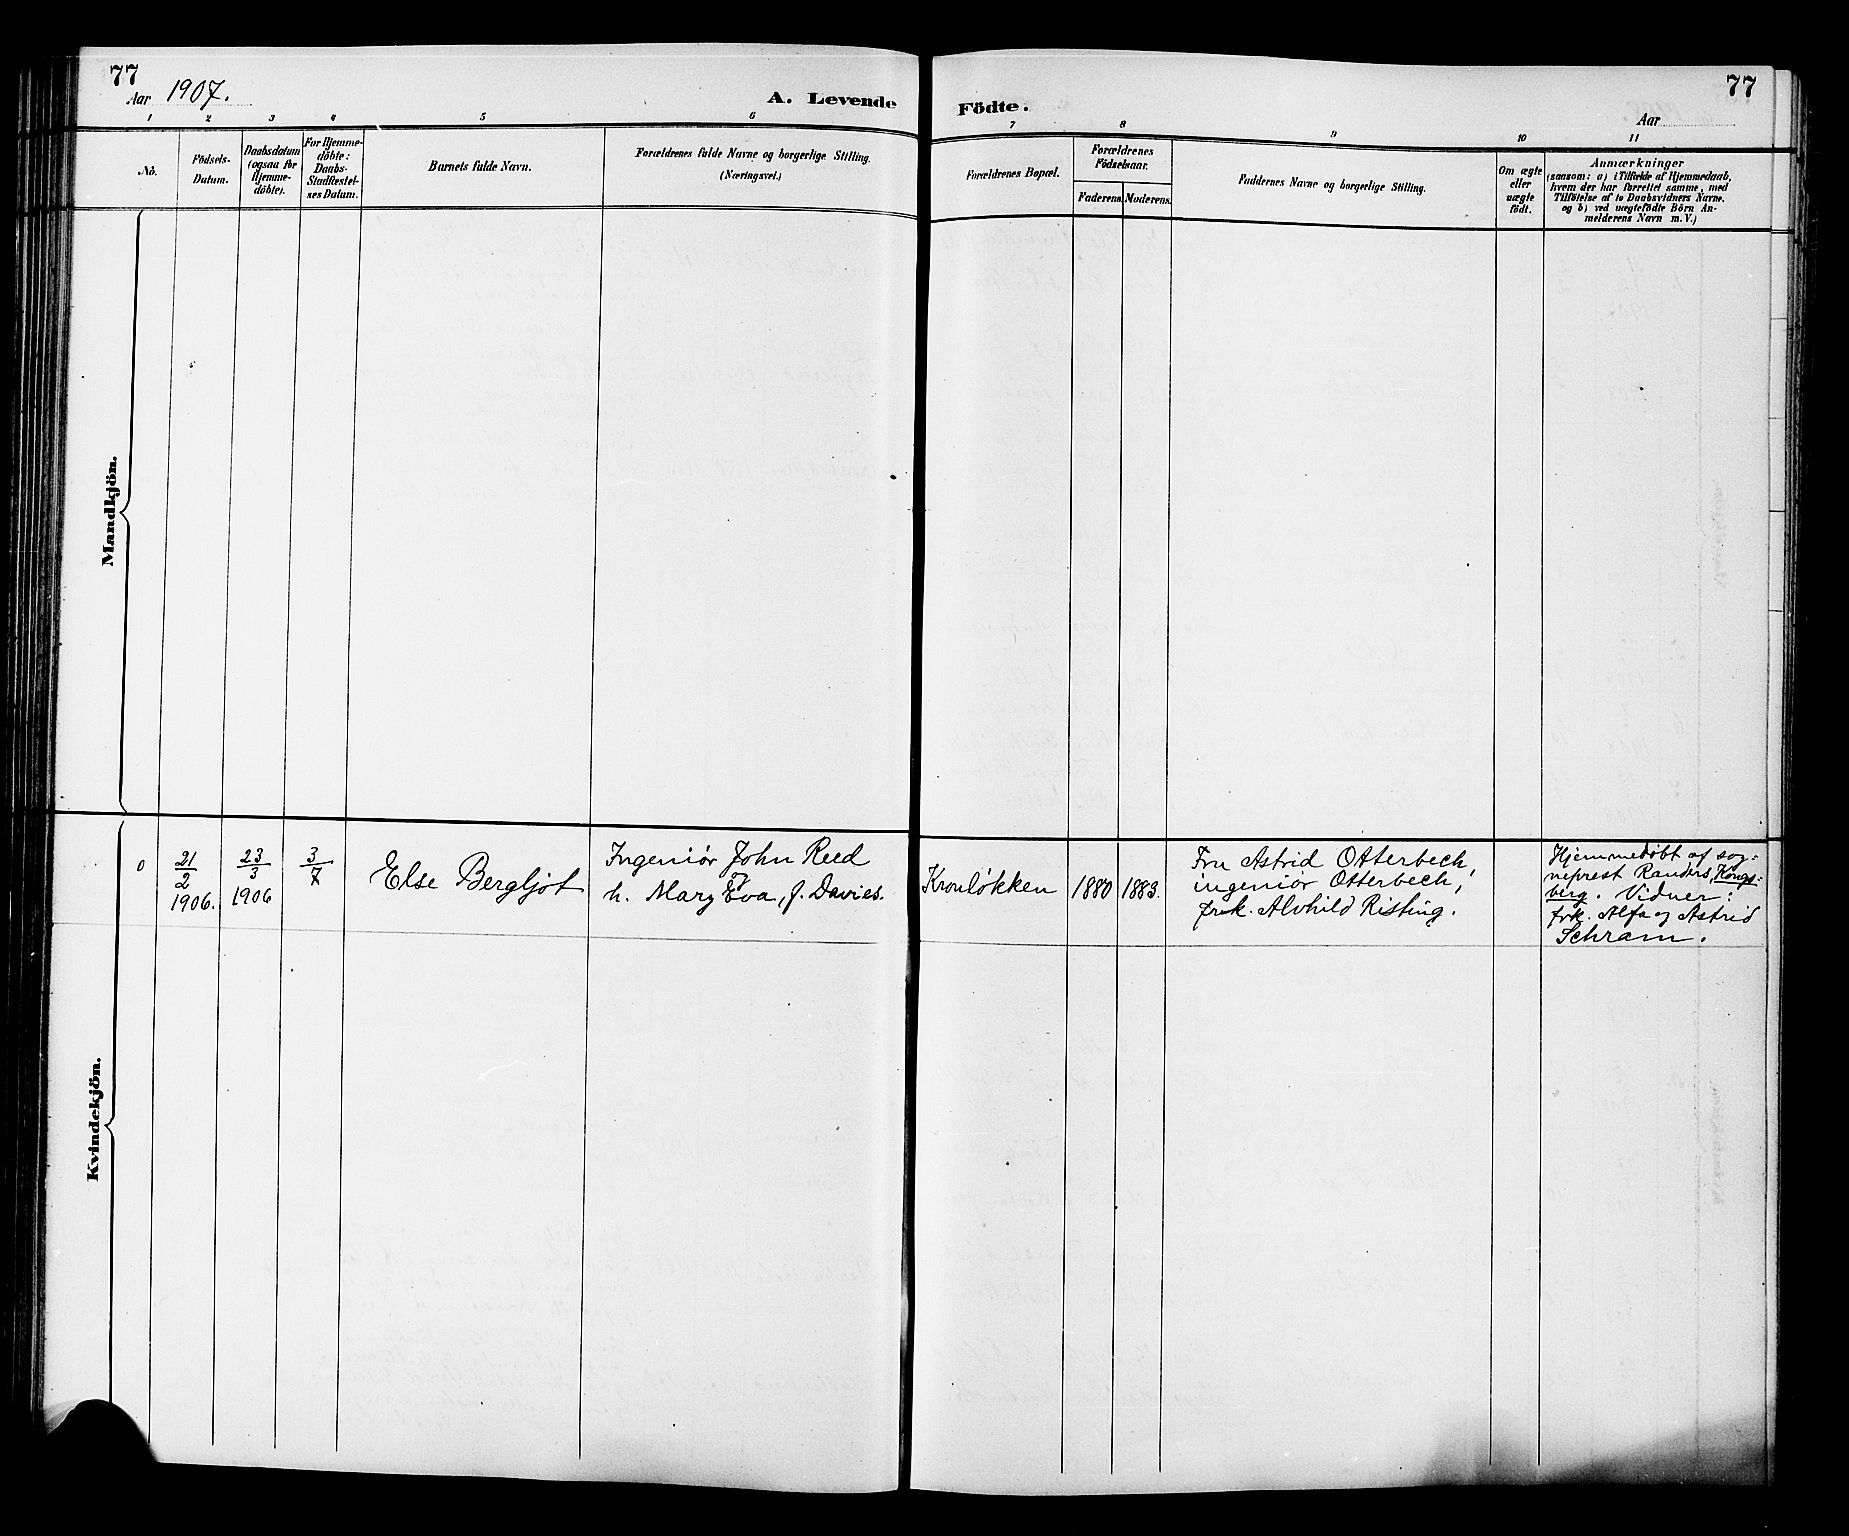 77
Aar 1907.
A. Levende Födte.
77
Aar
1 2 3 4 5 6 7 8 9 10 11
No.
Födsels-
Datum.
Daabsdatum
(ogsaa for
Hjemme-
döbte).
For Hjemme-
döbte:
Daabs-
Stadfæstel-
ses Datum.
Barnets fulde Navn.
Forældrenes fulde Navne og borgerlige Stilling.
(Næringsvei.)
Forældrenes Bopæl.
Forældrenes
Födselsaar.
Faderens.
Moderens.
Faddernes Navne og borgerlige Stilling.
Om ægte
eller
uægte
födt.
Anmærkninger
(saasom: a) i Tilfælde af Hjemmedaab,
hvem der har forrettet samme, med
Tilföielse af to Daabsvidners Navne.
og b) ved uægtefödte Börn An-
melderens Navn m. V.)
Mandkjön.
Kvindekjön.
0
21
2
1906.
23
3
1906
3
7
Else Bergljot
Ingeniør John Reed
og
h. Mary Eva, f. Davies.
Kronløkken
1880
1883.
Fru Astrid Otterbech,
ingeniør Otterbech,
frk. Alvhild Risting.
Hjemmedøbt af sog-
neprest Randers, Kongs-
berg. Vidner:
frk. Alfa og Astrid
Schram.